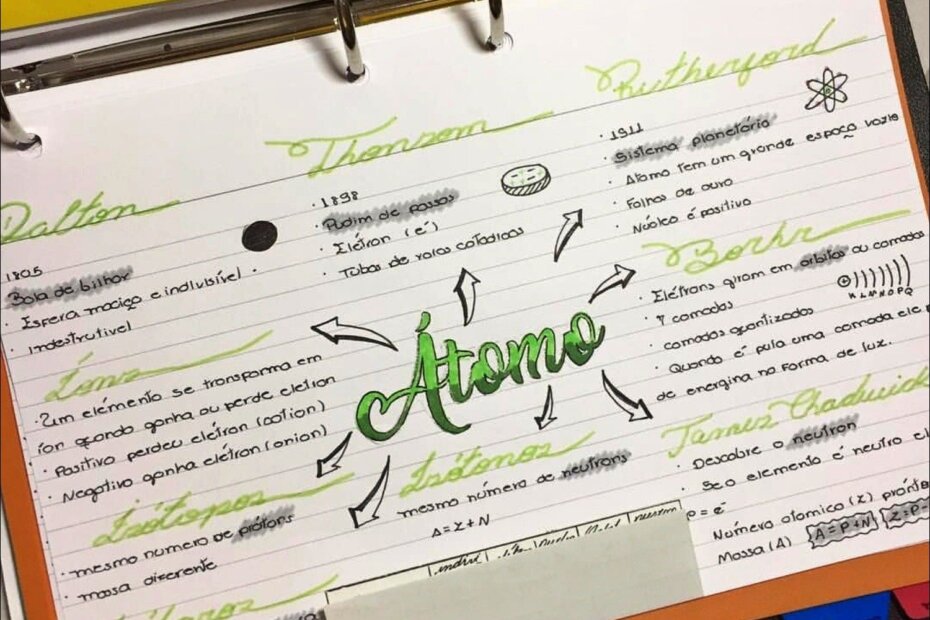 Dalton
1805
Bola de bilhar
· Esfera maciça e indivisível ·
· Indestrutível
Thonsom
· 1898
· Pudim de passas
· Elétron (e⁻)
· Tubos de raios catódicos
Rutherford
· 1911
· Sistema planetário
· Átomo tem um grande espaço vazio
· Folhas de ouro
· Núcleo é positivo
Borhr
· Elétrons giram em orbitas ou camadas
· 7 camadas
K L M N O P Q
· camadas quantizadas
· Quando é pula uma camada ele
de energina na forma de luz.
Átomo
Íons
· Um elemento se transforma em
íon quando ganha ou perde eletron
· Positivo perdeu elétron (cation)
· Negativo ganha elétron (anion)
Isótopos
· mesmo número de prótons
· massa diferente
Isótonos
mesmo número de neutrons
A = Z + N
James Chadwick
· Descobre o neutron
· Se o elemento é neutro
p = e⁻
Número atomico (Z)
Massa (A) A = P + N Z = P